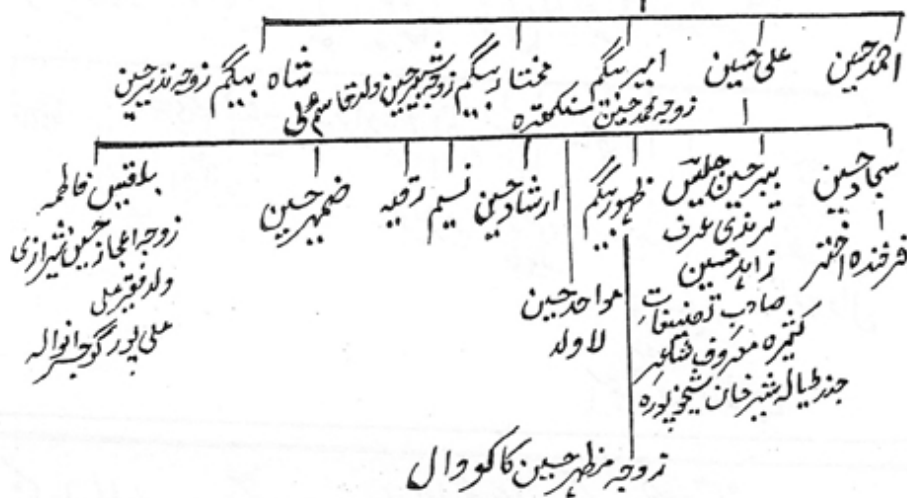 احمد حسین
علی حسین
امیر بیگم
زوجہ محمد حسین سکنہ
مختار بیگم زوجہ شبیر حسین ولد قاسم علی
شاہ بیگم زوجہ نذیر حسین
سجاد حسین
فرخندہ اختر
ببر حسین جلیس
ترمذی عرف
زاہد حسین
صاحبِ تصنیفاتِ
کثیرہ معروف شاعر
جنڈیالہ شیر خان شیخوپورہ
ظہور بیگم
زوجہ مظہر حسین کاکووال
مواحد حسین
لاولد
ارشاد حسین
نسیم
رقیہ
ضمیر حسین
بلاقیس فاطمہ
زوجہ اعجاز حسین شیرازی
ولد فقیر علی
علی پور گوجرانوالہ